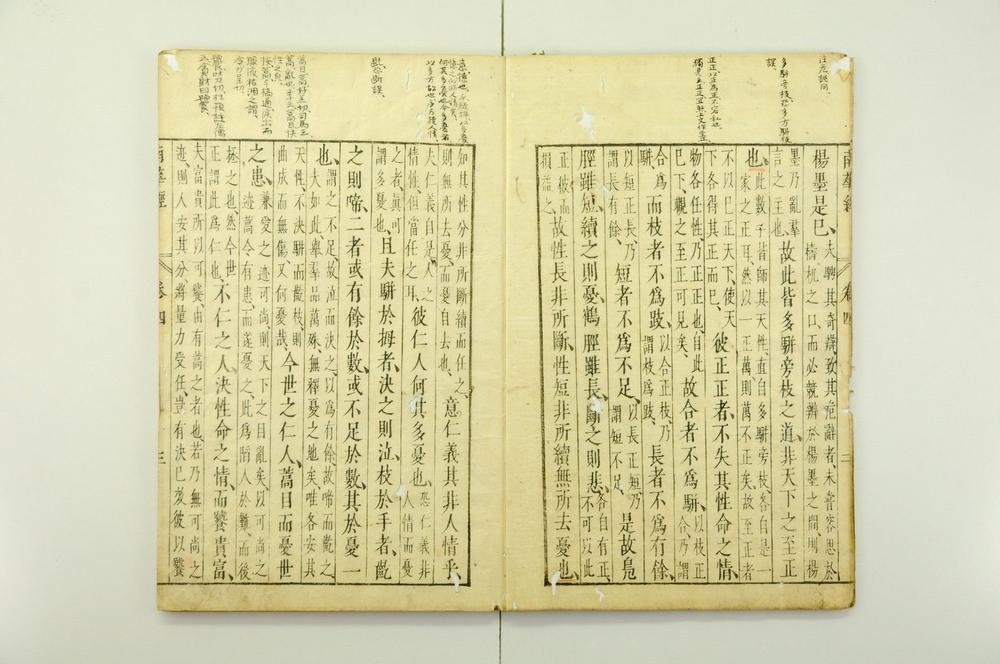 注危詭同、
多駢旁枝
南華經
卷四
楊墨是已、夫騁其奇辯、致其危辭者、未曾容思於檮杌之口、而必競辨於楊墨之間、則楊
墨乃亂羣言之主也、故此皆多駢旁枝之道、非天下之至正
也、此數子皆師其天性、直自多駢旁枝、各自是一家之正耳、然以一正萬則萬不正矣、故至正者
不以已正天下、使天下各得其正而已、彼正正者、不失其性命之情、
物各任性、乃正正也、自此已下、觀之至正可見矣、故合者不爲駢、以枝正合、乃謂
合爲駢、而枝者不爲跂、以合正枝、乃謂枝爲跂、長者不爲有餘、
以短正長、乃謂長有餘、短者不爲不足、以長正短、乃謂短不足、是故鳧
脛雖短、續之則憂、鶴脛雖長、斷之則悲、各自有正、不可以此
正彼而損益之、故性長非所斷、性短非所續、無所去憂也、
知其性分非所斷續而任之、則無所去憂、而憂自去也、意仁義其非人情乎、
夫仁義自是人之情性、但當任之耳、彼仁人何其多憂也、恐仁義非人情而憂
之者、眞可謂多憂也、且夫駢於拇者、決之則泣、枝於手者、齕
之則啼、二者或有餘於數、或不足於數、其於憂一
也、謂之不足、故泣而決之、以爲有餘、故啼而齕之、夫如此、舉羣品萬殊、無釋憂之地矣、唯各安其
天性、不決駢而齕枝、則曲成而無傷、又何憂哉、今世之仁人、蒿目而憂世
之患、兼愛之迹可尚、則天下之目亂矣、以可尚之迹、蒿令有患、而遂憂之、此爲陷人於難、而後
拯之也、然今世正謂此爲仁也、不仁之人、決性命之情、而饕貴富、
夫富貴所以可饕、由有蒿之者也、若乃無可尚之迹、則人安其分、將量力受任、豈有決已效彼以饕
南華經
卷四
三